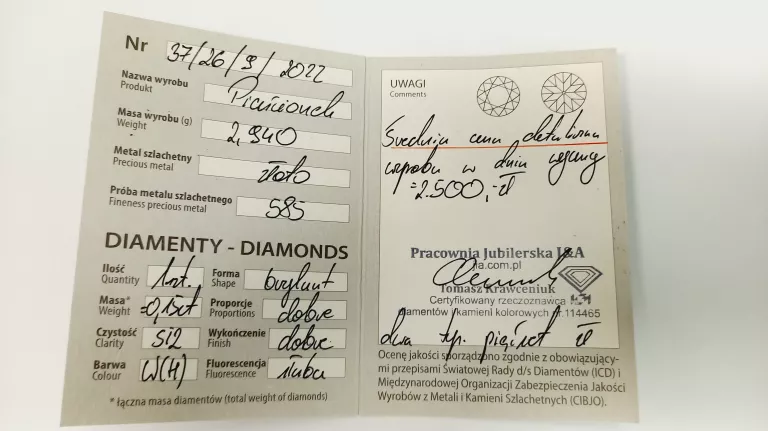 Nr 37/26/9/2022
Nazwa wyrobu
Produkt
Pierścionek
Masa wyrobu (g)
Weight
2,940
Metal szlachetny
Precious metal
złoto
Próba metalu szlachetnego
Fineness precious metal
585
DIAMENTY - DIAMONDS
Ilość
Quantity
1szt.
Forma
Shape
brylant
Masa*
Weight
=0,15ct
Proporcje
Proportions
dobre
Czystość
Clarity
Si2
Wykończenie
Finish
dobre
Barwa
Colour
W(H)
Fluorescencja
Fluorescence
słaba
* łączna masa diamentów (total weight of diamonds)
UWAGI
Comments
Średnia cena detaliczna
wyrobu w dniu wyceny
=2.500,-zł
Pracownia Jubilerska J&A
jia.com.pl
Tomasz Krawceniuk
Certyfikowany rzeczoznawca
diamentów i kamieni kolorowych nr.114465
dwa tys. pięćset zł
Ocenę jakości sporządzono zgodnie z obowiązujący-
mi przepisami Światowej Rady d/s Diamentów (ICD) i
Międzynarodowej Organizacji Zabezpieczenia Jakości
Wyrobów z Metali i Kamieni Szlachetnych (CIBJO).